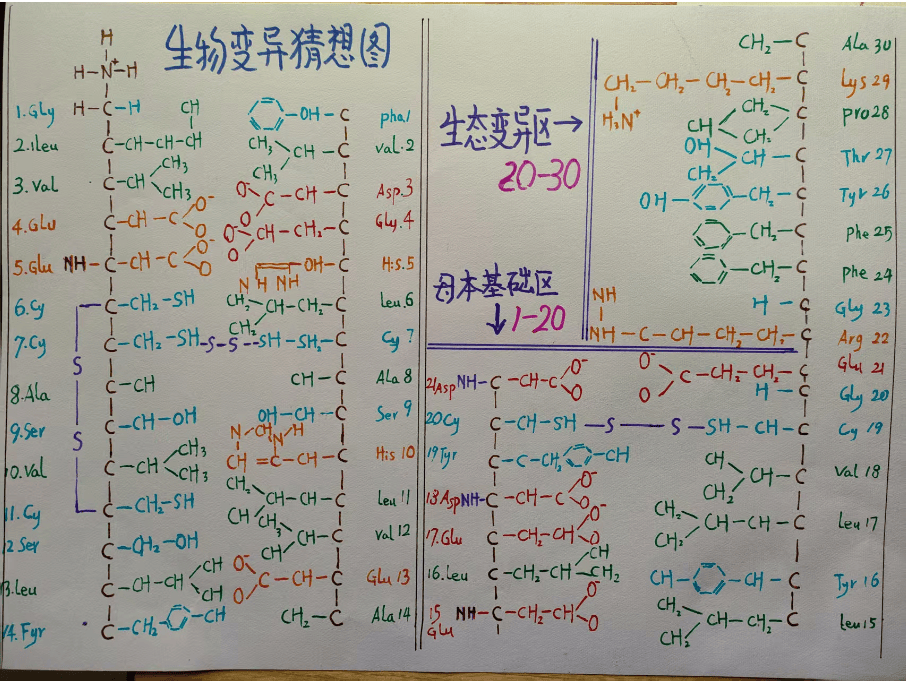 生物变异猜想图
H
H-N+-H
1.Gly H-C-H
2.ileu C-CH-CH-CH
CH
3.val C-CH
CH3
CH3
4.Glu C-CH-C
O-
O
5.Glu NH-C-CH-C
O-
O
6.Cy C-CH2-SH
7.Cy C-CH2-SH-S-S-SH-SH2-C Cy 7
S
8.Ala C-CH
9.Ser C-CH-OH
S
10.val C-CH
CH3
CH3
11.Cy C-CH2-SH
12 Ser C-CH2-OH
13.leu C-CH-CH
CH
CH
14.Fyr C-CH2-CH
OH-C pha1
CH3
CH3
CH-C val.2
O-
O
C-CH-C Asp.3
O-
O
CH-CH2-C Gly.4
OH-C His.5
N H NH
CH2
CH2
CH-CH2-C leu 6
CH-C Ala 8
OH-CH-C Ser 9
N-CH N H
CH=C-CH-C His 10
CH2
CH
CH-CH-C leu 11
CH3
CH
CH-C val 12
O-
O
C-CH-C Glu 13
CH2-C Ala 14
生态变异区→
20-30
母本基础区
↓1-20
CH2-C Ala 30
CH2-CH2-CH2-CH2-C Lys 29
H3N+
CH2
CH
CH2
C pro 28
OH
CH2
CH-C Thr 27
OH-CH2-C Tyr 26
CH2-C Phe 25
CH2-C Phe 24
H-C Gly 23
NH
NH-C-CH-CH2-CH2-C Arg 22
O-
O
C-CH2-CH2-C Glu 21
H-C Gly 20
21Asp NH-C-CH-C
O
O
20Cy C-CH-SH-S-S-SH-CH-C Cy 19
19Tyr C-C-CH2-CH
CH
CH2
CH-C val 18
18Asp NH-C-CH-C
O-
O
17.Glu C-CH2-CH
O-
O
CH2
CH2
CH-CH-C leu 17
16.leu C-CH2-CH-CH2
CH
CH-CH-C Tyr 16
15 Glu NH-C-CH2-CH
O-
O
CH2
CH2
CH-CH2-C leu 15